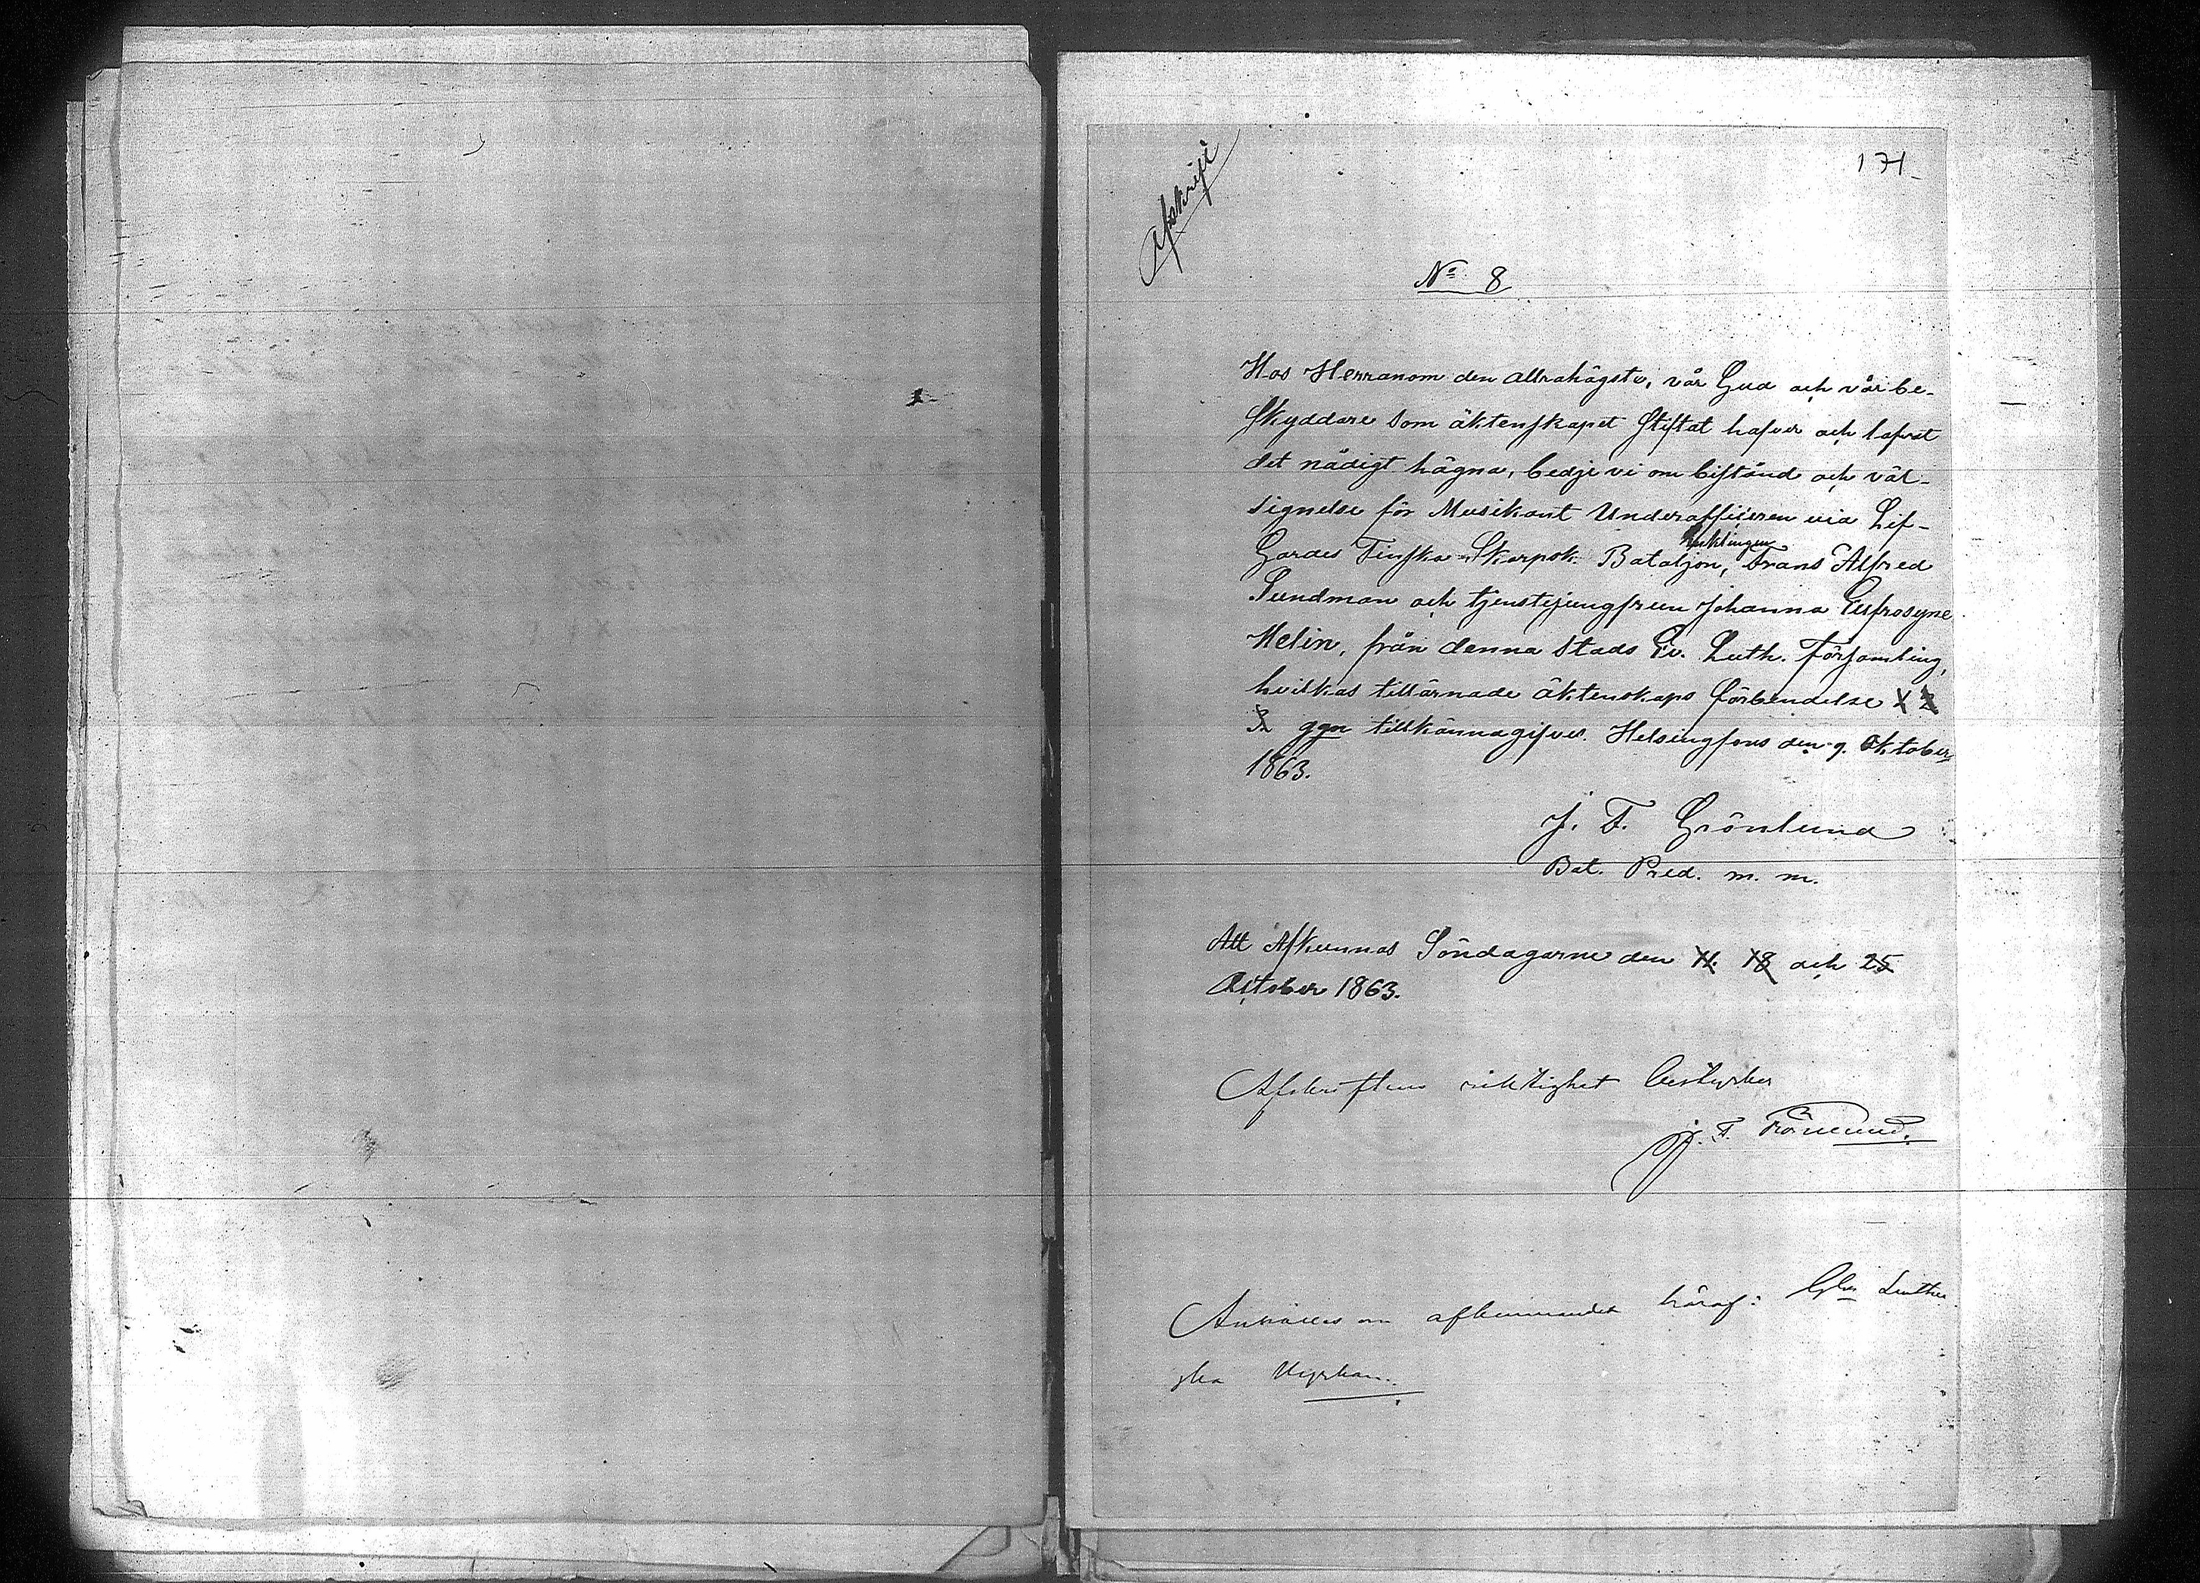 171
Afskrift
No 8
Hos Herranom den allrahögste, vår Gud och vår be-
skyddare som äktenskapet stiftat hafver och lofvat
det nådigt hägna, bedje vi om bistånd och väl-
signelse för Musikant Underofficeren vid Lif-
Gardes Finska Skarpsk. Bataljon, Ynklingen Frans Alfred
Sundman och tjenstejungfrun Johanna Eufrosyne
Melin, från denna Stads Ev. Luth. Församling,
hvilkas tillärnade äktenskaps förbindelse 1 2
3 ggn tillkännagifves. Helsingfors den 9. Oktober
1863.
J. F. Grönlund
Bat. Pred. m. m.
Att Afkunnas Söndagarne den 11. 18 och 25
October 1863.
Afskriftens riktighet bestyrker
J. F. Grönlund.
Anhålles om afkunnandet häraf: Luther
ska Kyrkan.